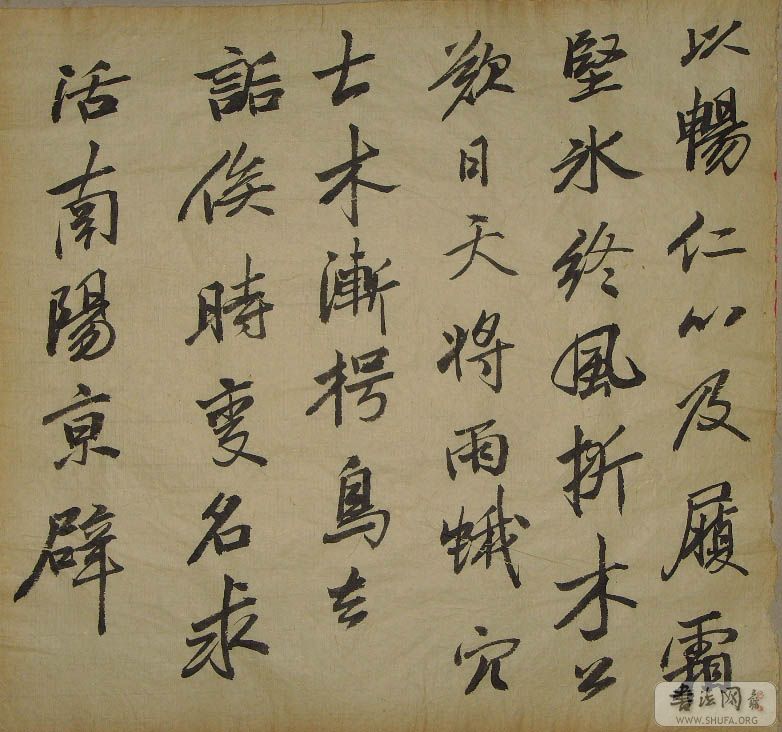 以暢仁心及履霜
堅冰終風折木公
歎曰天將雨蛾穴
士木漸枵鳥去
詬俟時変名求
活南陽京辟
書法网
WWW.SHUFA.ORG